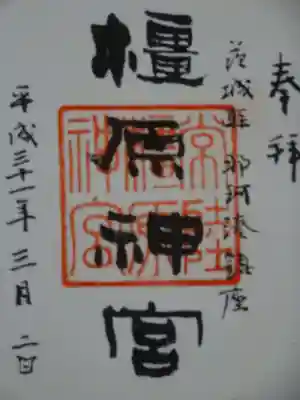 奉拝
茨城県 那珂湊鎮座
橿原神宮
常陸橿原神宮
平成三十一年 三月 二日